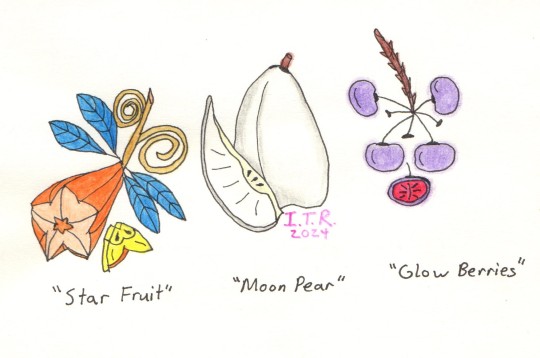 I.T.R.
2024
"Star Fruit"
"Moon Pear"
"Glow Berries"